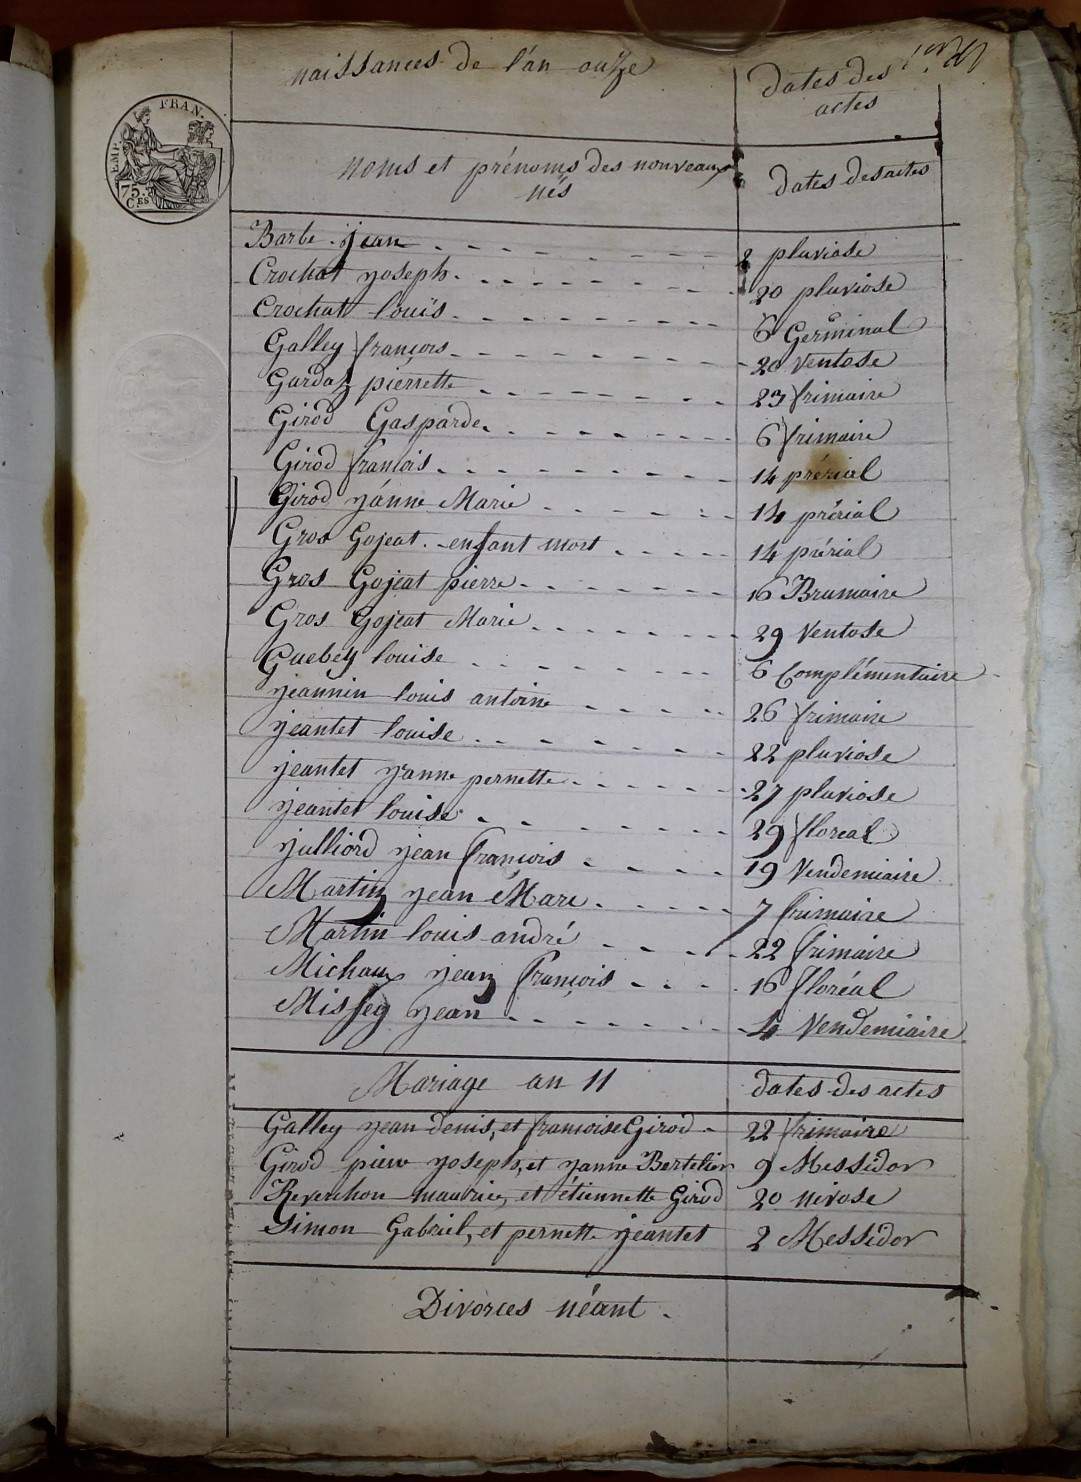 naissances de l'an onze
dates des actes
EMP. FRAN.
75. CES
noms et prénoms des nouveaux nés
dates des actes
Barbe jean 2 pluviose
Crochat yoseph 20 pluviose
Crochat louis 6 Germinal
Galley françois 20 Ventose
Gardaz pierrette 23 frimaire
Girod Gasparde 6 frimaire
Girod franΓois 14 prérial
Girod yánne Marie 14 prérial
Gros Gojeat enfant mort 14 prérial
Gros Gojeat pierre 16 Brumaire
Gros Gojeat Marie 29 Ventose
Guebey louise 6 Complémentaire
jeannin louis antoine 26 frimaire
jeantet louise 22 pluviose
jeantet yanne pernette 27 pluviose
jeantet louise 29 floreal
julliard yean françois 19 Vendemiaire
Martin yean Marc 7 frimaire
Martin louis andré 22 frimaire
Michaux yean françois 16 floréal
Missey yean 4 Vendemiaire
Mariage an 11 dates des actes
Galley yean denis, et francoise Girod 22 frimaire
Girod pierre yoseph, et yanne Bertelier 9 Messidor
Reverchon maurice, et étiennette Girod 20 nivose
Simon Gabriel, et pernette jeantet 2 Messidor
Divorces néant.